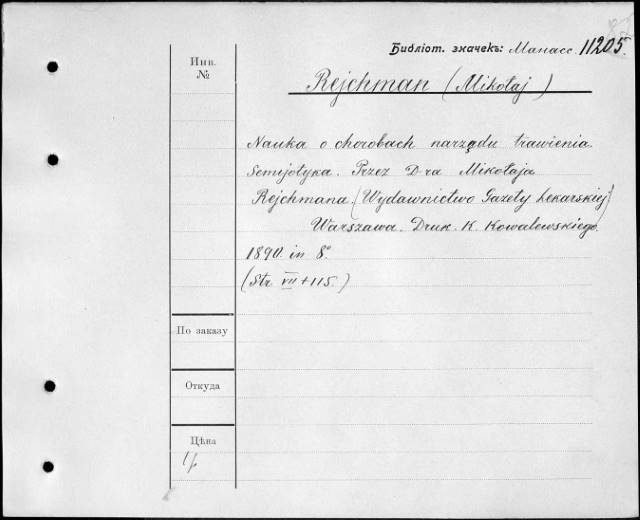 Библіот. значекъ: Манасс. 11205.
Инв.
№
Rejchman (Mikołaj)
Nauka o chorobach narządu trawienia.
Semijotyka. Przez D-ra Mikołaja
Rejchmana. (Wydawnictwo Gazety Lekarskiej)
Warszawa. Druk. K. Kowalewskiego.
1890. in 8º
(Str. VII + 115.)
По заказу
Откуда
Цѣна